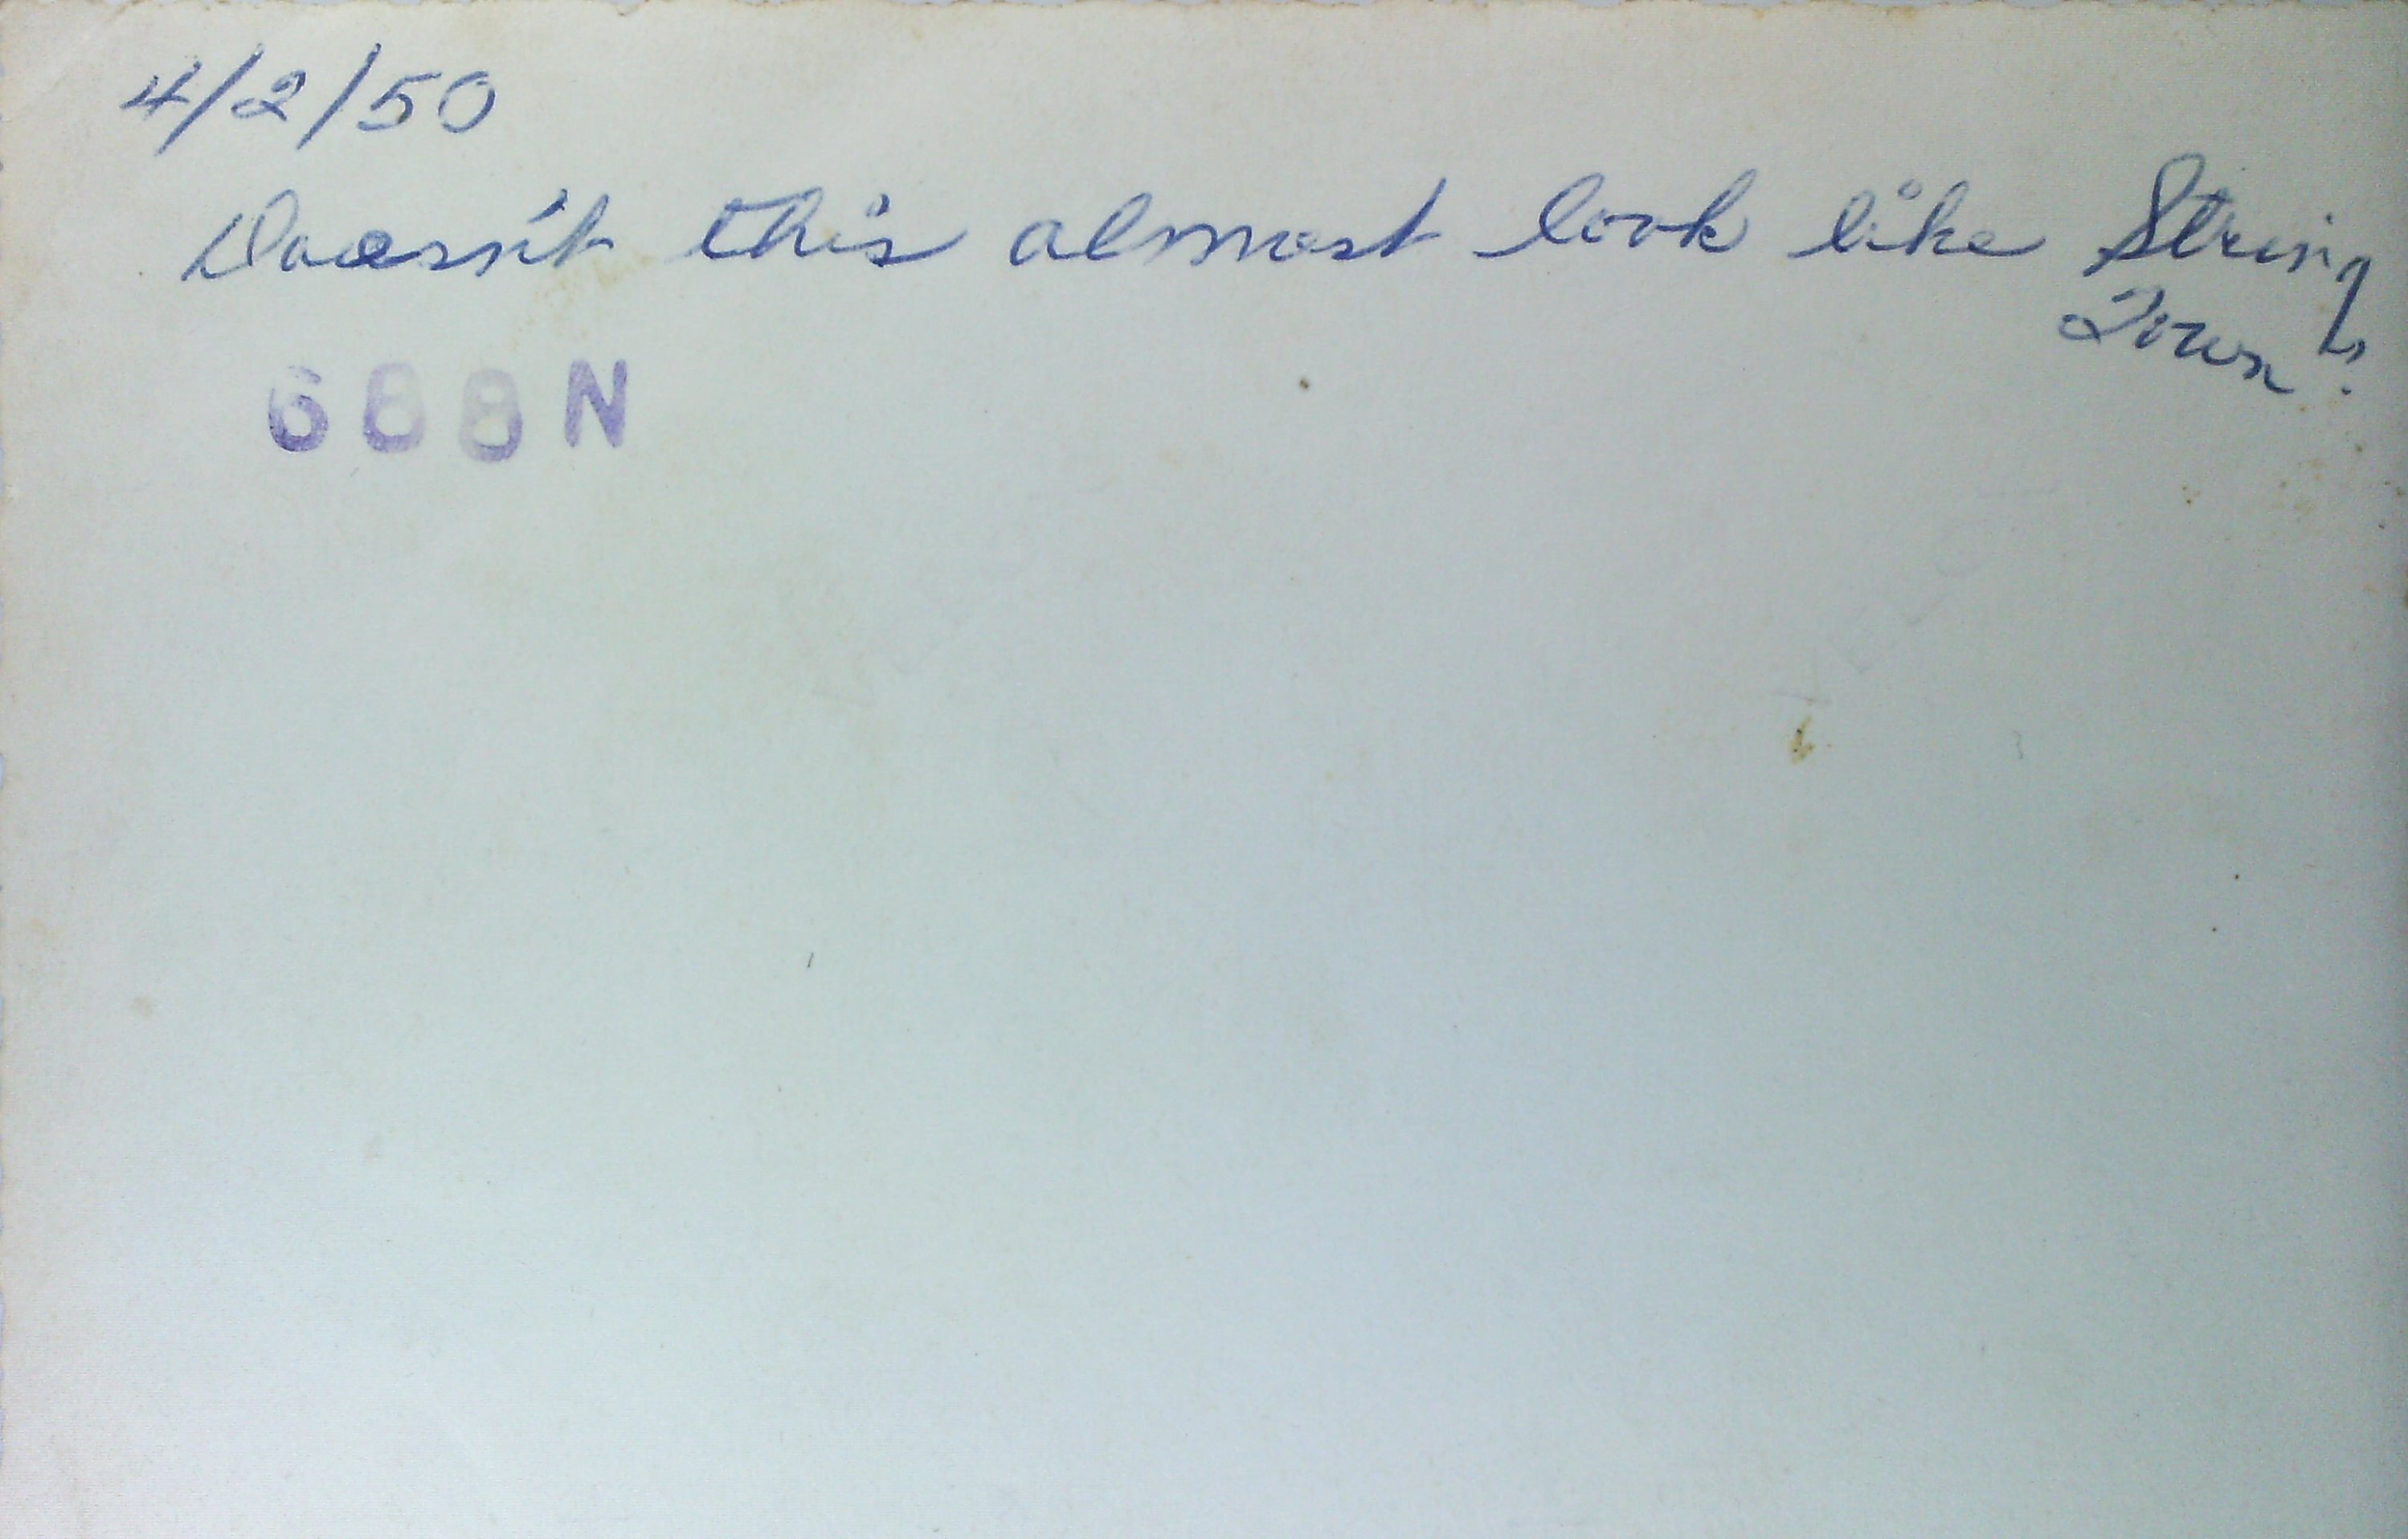 4/2/50
Doesn't this almost look like String
Town?
688N